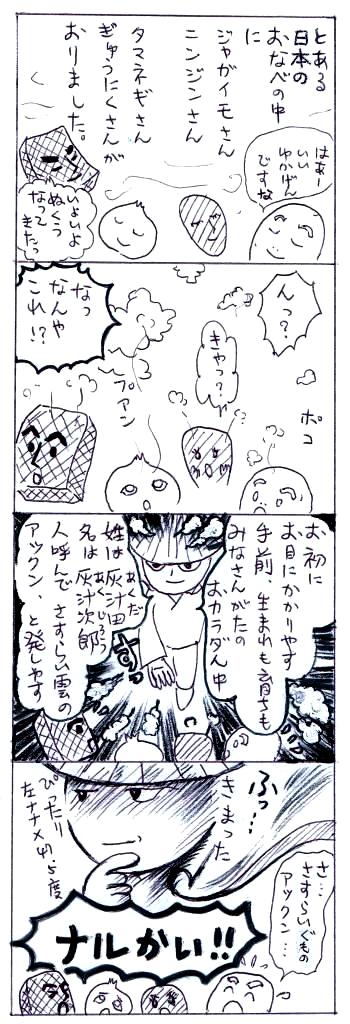 とある
日本の
おなべの中
に
ジャガイモさん
ニンジンさん
タマネギさん
ぎゅうにくさんが
おりました。
はあー
いい
ゆかげん
ですな
いよいよ
ぬくう
なって
きたっ
んっ?
ポコ
きゃっ?
プアン
なっ
なんや
これ!?
お初に
お目にかかりやす
手前、生まれも育ちも
みなさんがたの
おカラダん中
すっ
姓は灰汁田
あくだ
名は灰汁次郎
あくじろう
人呼んでさすらい雲の
アックン、と発しやす
さ…
さすらいぐもの
アックン…
ふっ…
きまった
ぴったり
左ナナメ41.5度
ナルかい!!